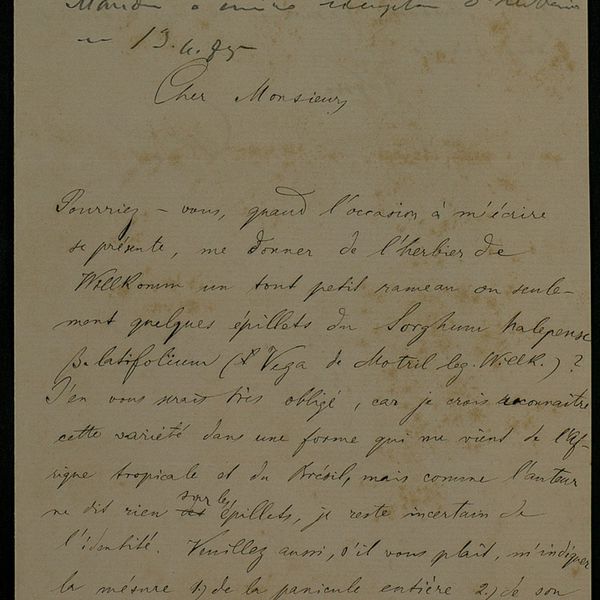 13.4.85
Cher Monsieur,
Pourriez-vous, quand l'occasion à m'écrire
se présente, me donner de l'herbier de
Willkomm un tout petit rameau ou seule-
ment quelques épillets du Sorghum halepense
β. latifolium (Vega de Motril leg. Willk.) ?
J'en vous serais très obligé, car je crois reconnaître
cette variété dans une forme qui me vient de l'Af-
rique tropicale et du Brésil, mais comme l'auteur
ne dit rien sur les épillets, je reste incertain de
l'identité. Veuillez aussi, s'il vous plaît, m'indiquer
la mésure 1) de la panicule entière 2) de son